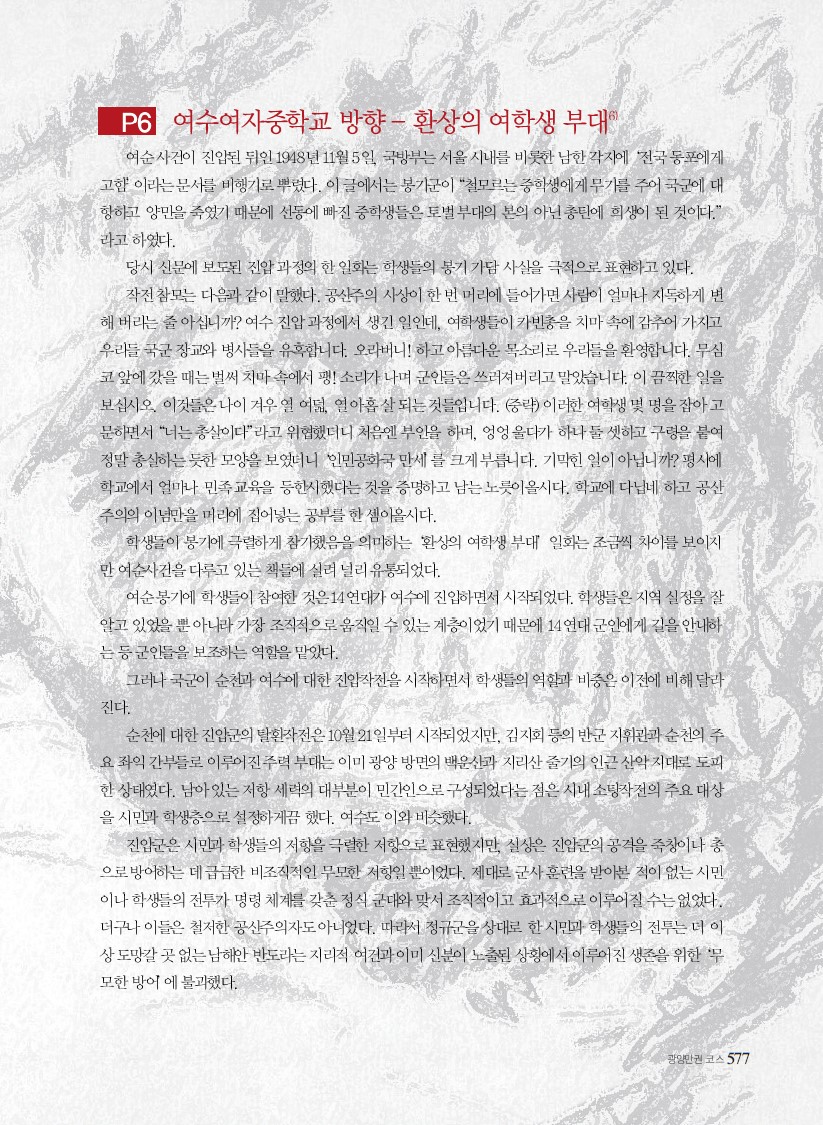 P6 여수여자중학교 방향 – 환상의 여학생 부대6)
여순사건이 진압된 뒤인 1948년 11월 5일, 국방부는 서울 시내를 비롯한 남한 각지에 '전국 동포에게
고함' 이라는 문서를 비행기로 뿌렸다. 이 글에서는 봉기군이 “철모르는 중학생에게 무기를 주어 국군에 대
항하고 양민을 죽였기 때문에 선동에 빠진 중학생들은 토벌 부대의 본의 아닌 총탄에 희생이 된 것이다.”
라고 하였다.
당시 신문에 보도된 진압 과정의 한 일화는 학생들의 봉기 가담 사실을 극적으로 표현하고 있다.
작전참모는 다음과 같이 말했다. 공산주의 사상이 한 번 머리에 들어가면 사람이 얼마나 지독하게 변
해 버리는 줄 아십니까? 여수 진압 과정에서 생긴 일인데, 여학생들이 카빈총을 치마 속에 감추어 가지고
우리들 국군 장교와 병사들을 유혹합니다. 오라버니! 하고 아름다운 목소리로 우리들을 환영합니다. 무심
코 앞에 갔을 때는 벌써 치마 속에서 팽! 소리가 나며 군인들은 쓰러져버리고 말았습니다. 이 끔찍한 일을
보십시오. 이것들은 나이 겨우 열 여덟, 열 아홉 살 되는 것들입니다. (중략) 이러한 여학생 몇 명을 잡아 고
문하면서 “너는 총살이다”라고 위협했더니 처음엔 부인을 하며, 엉엉 울다가 하나 둘 셋하고 구령을 붙여
정말 총살하는 듯한 모양을 보였더니 '인민공화국 만세' 를 크게 부릅니다. 기막힌 일이 아닙니까? 평시에
학교에서 얼마나 민족 교육을 등한시했다는 것을 증명하고 남는 노릇이올시다. 학교에 다닙네 하고 공산
주의의 이념만을 머리에 집어넣는 공부를 한 셈이올시다.
학생들이 봉기에 극렬하게 참가했음을 의미하는 '환상의 여학생 부대' 일화는 조금씩 차이를 보이지
만 여순사건을 다루고 있는 책들에 실려 널리 유통되었다.
여순 봉기에 학생들이 참여한 것은 14연대가 여수에 진입하면서 시작되었다. 학생들은 지역 실정을 잘
알고 있었을 뿐 아니라 가장 조직적으로 움직일 수 있는 계층이었기 때문에 14연대 군인에게 길을 안내하
는 등 군인들을 보조하는 역할을 맡았다.
그러나 국군이 순천과 여수에 대한 진압작전을 시작하면서 학생들의 역할과 비중은 이전에 비해 달라
진다.
순천에 대한 진압군의 탈환작전은 10월 21일부터 시작되었지만, 김지회 등의 반군 지휘관과 순천의 주
요 좌익 간부들로 이루어진 주력 부대는 이미 광양 방면의 백운산과 지리산 줄기의 인근 산악 지대로 도피
한 상태였다. 남아 있는 저항 세력의 대부분이 민간인으로 구성되었다는 점은 시내 소탕작전의 주요 대상
을 시민과 학생층으로 설정하게끔 했다. 여수도 이와 비슷했다.
진압군은 시민과 학생들의 저항을 극렬한 저항으로 표현했지만, 실상은 진압군의 공격을 죽창이나 총
으로 방어하는 데 급급한 비조직적인 무모한 저항일 뿐이었다. 제대로 군사 훈련을 받아본 적이 없는 시민
이나 학생들의 전투가 명령 체계를 갖춘 정식 군대와 맞서 조직적이고 효과적으로 이루어질 수는 없었다.
더구나 이들은 철저한 공산주의자도 아니었다. 따라서 정규군을 상대로 한 시민과 학생들의 전투는 더 이
상 도망갈 곳 없는 남해안 반도라는 지리적 여건과 이미 신분이 노출된 상황에서 이루어진 생존을 위한 '무
모한 방어' 에 불과했다.
광양만권 코스 577